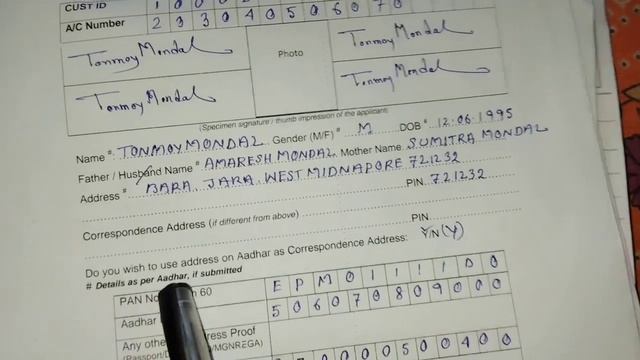 CUST ID 1 0 0
A/C Number 2 9 3 0 4 0 5 0 6 0 7 0
Tonmoy Mondal
Photo
Tonmoy Mondal
Tonmoy Mondal
Tonmoy Mondal
(Specimen signature / thumb impression of the applicant)
Name #: TONMOY MONDAL Gender (M/F) # M DOB # 12.06.1995
Father / Husband Name # AMARESH MONDAL Mother Name SUMITRA MONDAL
Address # BARA. JARA. WEST MIDNAPORE 721232
PIN 721232
Correspondence Address (if different from above) PIN
Do you wish to use address on Aadhar as Correspondence Address: Y/N (Y)
# Details as per Aadhar, if submitted
PAN No 60 E P M 0 1 1 1 1 0 0
Aadhar 5 0 6 0 7 0 8 0 9 0 0 0
Any othe Address Proof
(Passport/D /MGNREGA) 0 0 0 0 5 0 0 4 0 0